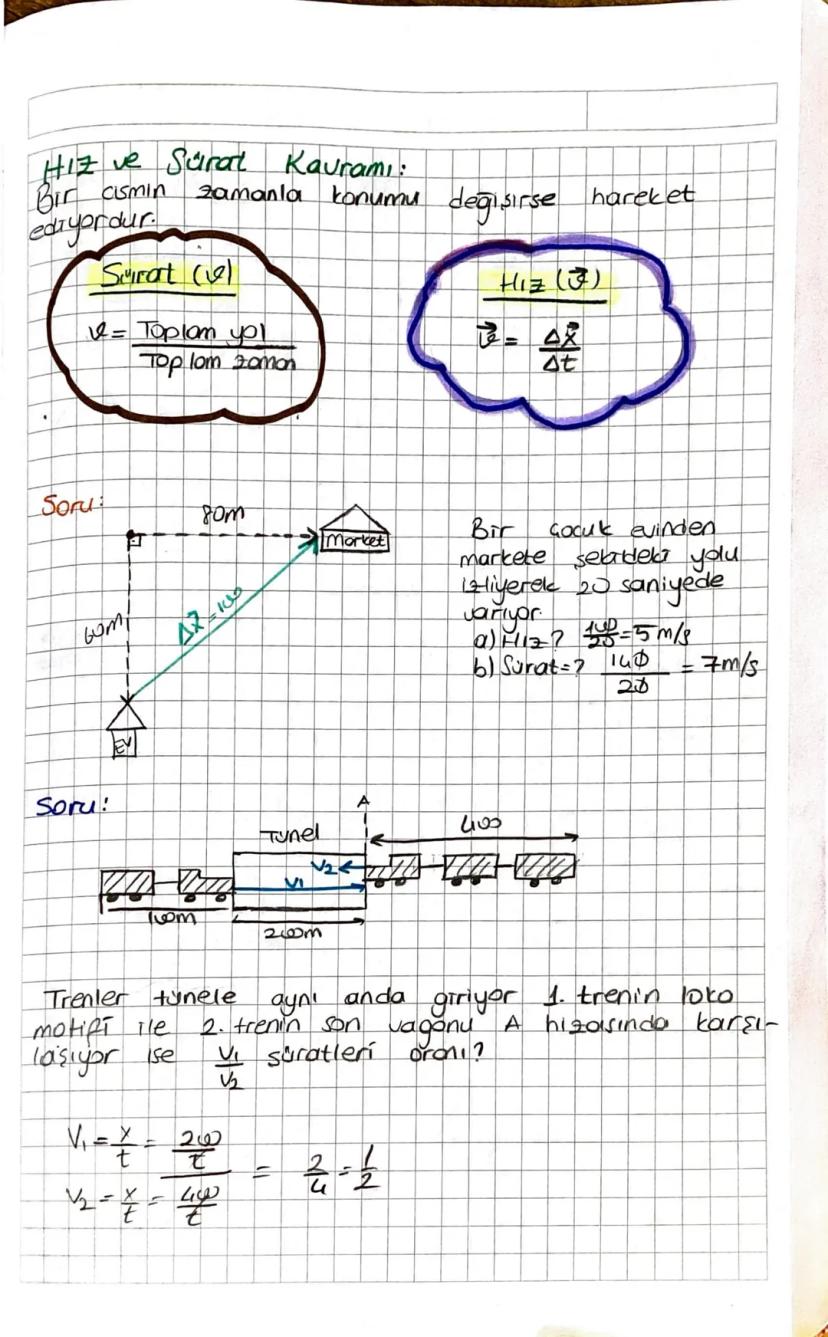 Hız ve Sürat Kavramı:
Bir cismin zamanla konumu değişirse hareket
ediyordur.
Sürat (v)
v = Toplam yol
Toplam zaman
Hız (v⃗)
v⃗ = Δx⃗
Δt
Soru:
80m
Market
60m
Δx⃗=100
EV
Bir çocuk evinden
markete şekildeki yolu
izliyerek 20 saniyede
varıyor.
a) Hız? 100/20 = 5 m/s
b) Sürat=? 140/20 = 7 m/s
Soru:
A
Tünel
400
V2
V1
100m
200m
Trenler tünele aynı anda giriyor 1. trenin loko
motifi ile 2. trenin son vagonu A hizasında karşı-
laşıyor ise V1/V2 süratleri oranı?
V1 = x/t = 200/t
= 2/4 = 1/2
V2 = x/t = 400/t